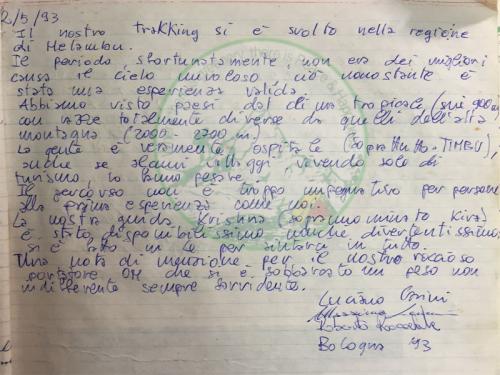 2/5/93
Il nostro trakking si è svolto nella regione
di Helambu.
Il periodo, sfortunatamente non era dei migliori
causa il cielo nuvoloso, ciò nonostante è
stata una esperienza valida.
Abbiamo visto paesi dal clima tropicale (sui 900 m)
con razze totalmente diverse da quelli dell'alta
montagna (2000 - 2700 m.)
La gente è veramente ospitale (soprattutto a TIMBU),
anche se alcuni villaggi vivendo solo di
turismo, lo fanno pesare.
Il percorso non è troppo impegnativo per persone
alla prima esperienza come noi.
La nostra guida Krishna (soprannominato Kira)
è stato disponibilissimo anche divertentissimo
si è fatto in 4 per aiutarci in tutto.
Una nota di menzione per il nostro
portatore OM che si è sobbarcato un peso non
indifferente sempre sorridente.
Luciano
Roberto
Bologna 93